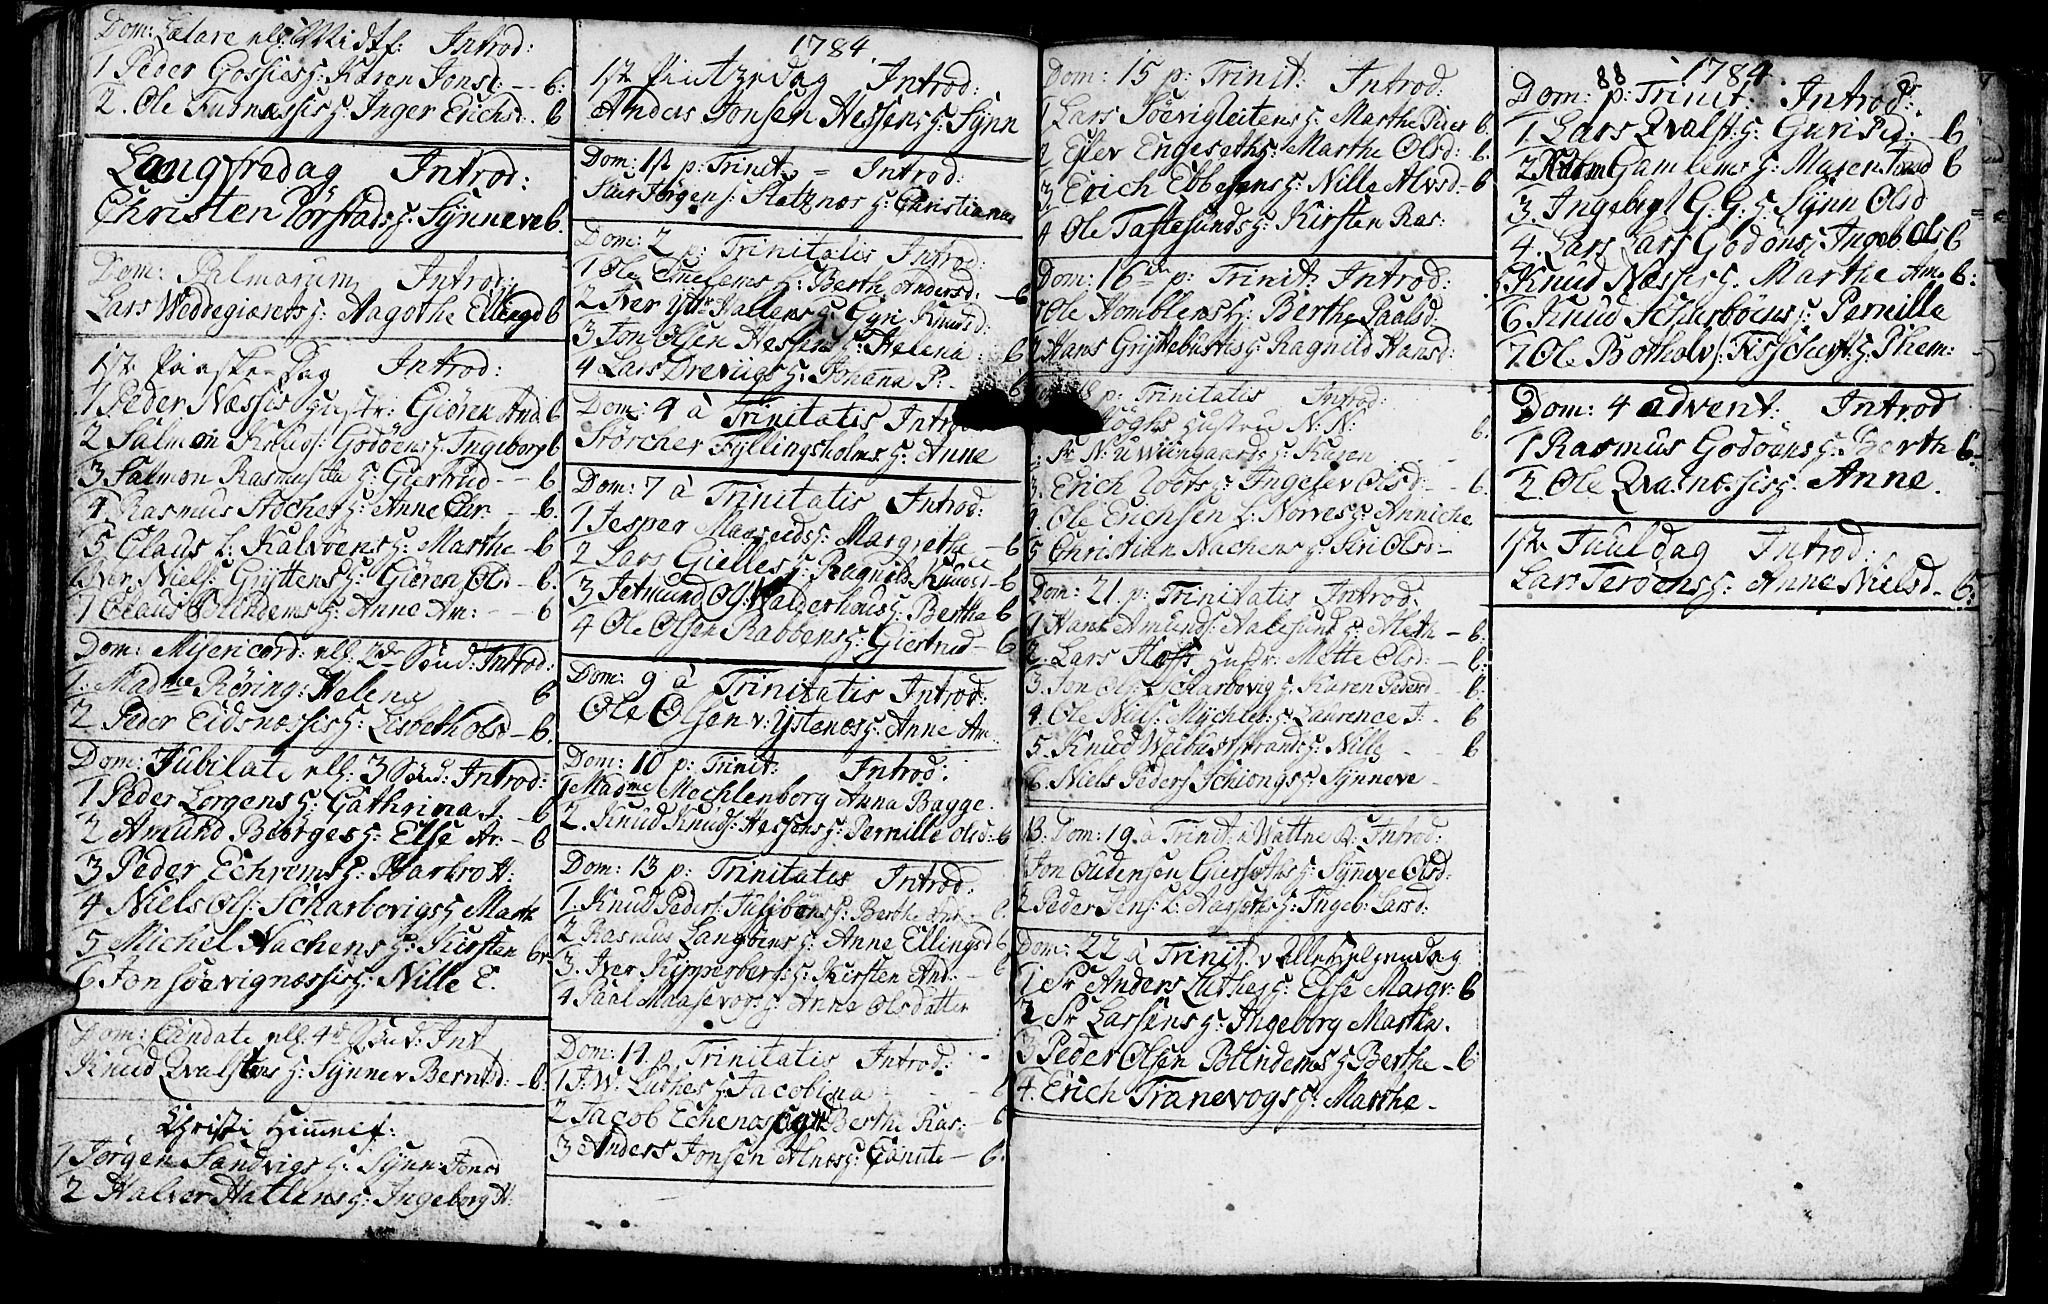 Dom: Lætare ell: Midtf: Introd:
1 Peder Gossies H: Karen Jonsd: - - 6:
2. Ole Furnæssis H: Inger Erichsd: 6
Langfredag Introd:
Christen Rörstads H: Synneve 6.
Dom: Palmarum Introd:
Lars Weddegierets H: Aagothe Ellingsd 6
1ste Paaske Dag Introd:
1 Peder Næssis Hustr: Giören And 6
2 Salmon Knuds: Godöens H: Ingeborg 6
3 Salmon Rasmus H: Giertrud - - 6
4 Rasmus Stöches H: Anne Chr: - 6.
5 Claus L: Kalvöens H: Marthe - 6
6 Iver Niels: Gryttens H: Giören Ols - 6.
7 Claus Blindems H: Anne Am: - - 6
Dom: Misericord: ell: 2den Sönd: Introd:
1. Madme Röring: Helena 6
2 Peder Eidsnæssis H: Lisbeth Olsd - 6.
Dom: Jubilate ell: 3 Sönd: Introd:
1 Peder Lorgens H: Cathrina J. - 6
2 Amund Beorges H: Else Ar: - 6
3 Peder Echrems H: Barbro H:
4 Niels Ols: Scharbovigs H Marte
5 Michel Nachens H: Kirsten 6.
6 Jon Söevignæssis H: Nille E.
Dom: Cantate ell: 4de Sönd: Int
Knud Qvalstens H: Synnev Berntsd: - 6.
Christi Himmelf:
1 Jörgen Sandvigs H: Synn: Jons
2 Halver Hatlens H: Ingeborg H:
1784.
1ste Pintzedag Introd:
Anders Jonsen Hessens H: Synn
Dom: 1ste p: Trinit: = Introd:
Siur Jörgens: Slatznes H: Christiana
Dom: 2 p: Trinitatis Introd:
1 Ole Emelems H: Berthe Andersd: - 6
2 Iver Ytr Hallens H: Gyri Knudsd:
3 Jon Olsen Hessens H: Helena : 6
4 Lars Dreviigs H: Johanna P: - 6
Dom: 4 à Trinitatis Introd
Störcher Fyllingsholms H: Anne
Dom: 7 à Trinitatis Introd:
1 Jesper Maaseids H: Margrethe - 6
2 Lars Gielles H: Ragnild Knudsd - 6
3 Jetmund O: G: Walderhous H: Berthe 6
4 Ole Olsen Rabbens H: Giertrud - 6
Dom: 9 à Trinitatis Introd:
Ole Olsen v: Ystenes H: Anne Am:
Dom: 10 p: Trinit: Introd:
1 Madme Mechlenborg Anna Bagge.
2. Knud Knuds: Hessens H: Pernille Olsd: 6
Dom: 13 p: Trinitatis Introd:
1. Knud Peders: H: Berthe 6.
2 Rasmus Langöens H: Anne Ellingsd 6
3. Iver Kipperber H: Kirsten And: - 6
4 Paal Maasevog H: Anna Olsdatter
Dom: 14 p Trinitatis Introd:
1 J: W: Luthes H: Jacobina - - 6
2 Jacob Echenes H: Berthe Ras: 6
3 Anders Jonsen Alnes H: Canute - 6.
Dom: 15 p: Trinit: Introd:
1 Lars Söevigleitens H: Marthe Peder 6.
2 Eslev Engeseths: Marthe Olsd: 6.
3 Erich Ebbesens H: Nille Alvsd - 6
4 Ole Taftesunds H: Kirsten Ras:
Dom: 16de p: Trinit: Introd:
1 Ole Homblens H: Berthe Paalsd.
2 Hans Gryttebustis H: Ragnild Hansd:
18 p: Trinitatis Introd:
Hustrue N: N: 6.
2. Sr N: U: Wiingaards H: Karen
3. Erich H: Ingelev Olsd: - 6.
4. Ole Erichsen L: Norves H: Anniche
5 Christian Nachens H: Siri Olsd: -
Dom: 21. p: Trinitatis Introd:
1 Hans Amunds: Aalesund H: Meth - 6:
2. Lars Hofs Hustr: Mette Olsd: - 6:
3. Jon Ols: Scharbovig H: Karen Pedersd - 6.
4. Ole Niels: Mychleb: H: Laurence J: - 6
5. Knud Weibustrands H: Nille - - 6
6. Niels Peders Schiongs H: Synneve -
13. Dom: 19 à Trinit: i Wattne K: Introd:
1 Jon Oudensen Gierseths H: Synneve Olsd:
2 Peder Jens: L: Aarseths H: Ingeb: Larsd:
Dom: 22 à Trinit: v Allehelgensdag
1 Sr Anders Luthes H: Else Margr: 6
2 Sr Larsens H: Ingeborg Martha.
3 Peder Olsen Blindems H: Berthe - 6:
4. Erich Tranevogs H: Marthe -
88 1784
Dom: p: Trinit: Introd:
1 Lars Qvalst: H: Guri Ped: - 6
2 Gamlems H: Maren Knud 6
3. Ingebrigt G. G: H: Synn Olsd
4. Lars Lars Godöns Ingeb Ols 6
5 Knud Næssis H: Marthe Am: 6:
6 Knud Scharböens H: Pernille
7. Ole Botholvs: Fisscherst: H: Phem: -
Dom: 4 Advent: Introd
1 Rasmus Godöens H: Berth 6.
2 Ole Qvasnessis H: Anne.
1ste Juuldag Introd:
Lars Teröens H: Anne Nielsd - 6.